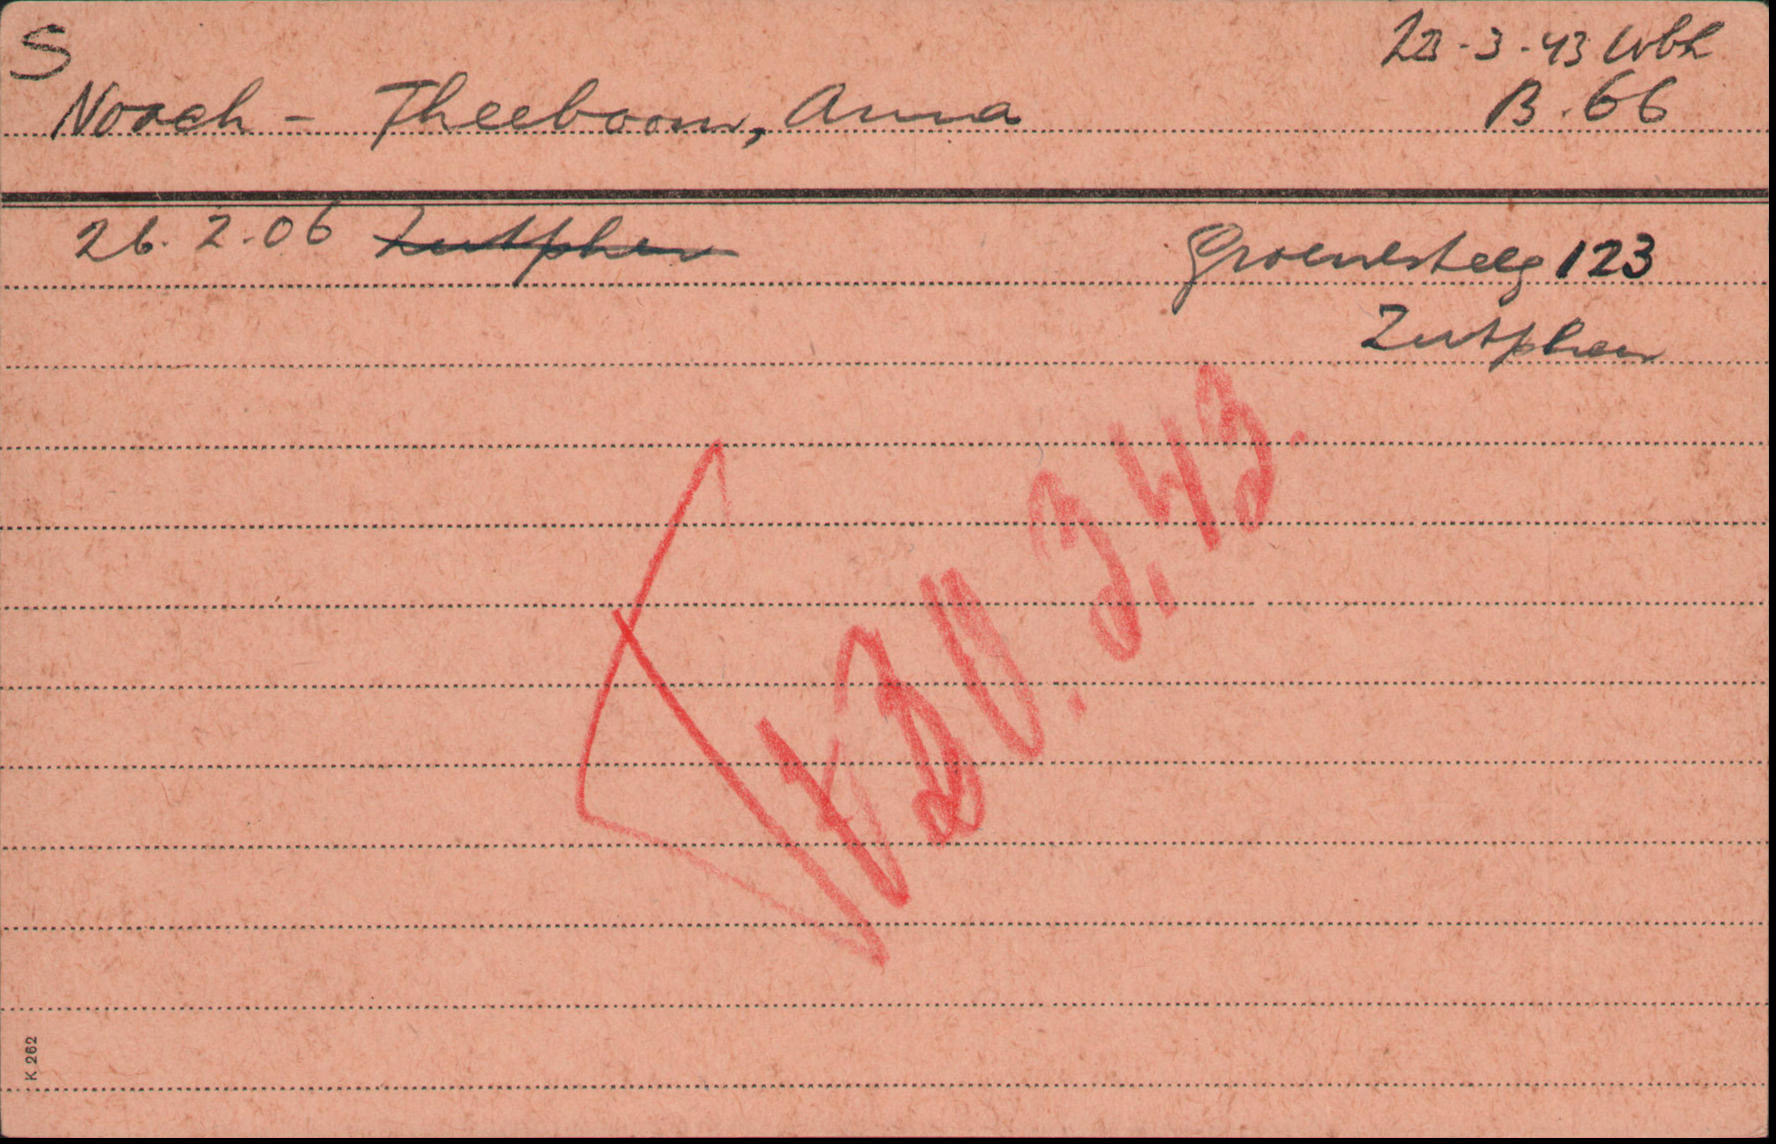 S
23-3-43 Wbk
Noach - Theeboom, Anna
B.66
26.2.06 Zutphen
Groenesteeg 123
Zutphen
30.3.43.
K 262